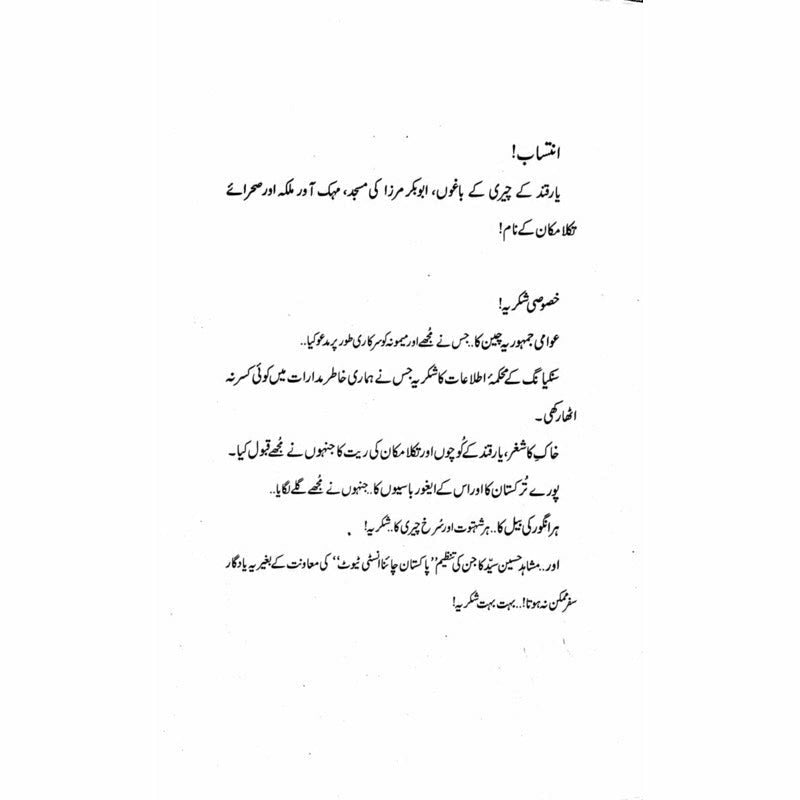 انتساب!
یارقند کے چیری کے باغوں، ابوبکر مرزا کی مسجد، مہک آور ملکہ اور صحرائے
تکلا مکان کے نام!
خصوصی شکریہ!
عوامی جمہوریہ چین کا.. جس نے مُجھے اور میمونہ کو سرکاری طور پر مدعو کیا..
سنکیانگ کے محکمۂ اطلاعات کا شکریہ جس نے ہماری خاطر مدارات میں کوئی کسر نہ
اٹھا رکھی۔
خاکِ کاشغر، یارقند کے کُوچوں اور تکلا مکان کی ریت کا جنہوں نے مُجھے قبول کیا۔
پورے تُرکستان کا اور اس کے ایغور باسیوں کا.. جنہوں نے مُجھے گلے لگایا..
ہر انگور کی بیل کا.. ہر شہتوت اور سُرخ چیری کا.. شکریہ!
اور.. مشاہد حسین سیّد کا جن کی تنظیم ”پاکستان چائنا انسٹی ٹیوٹ“ کی معاونت کے بغیر یہ یادگار
سفر ممکن نہ ہوتا!.. بہت بہت شکریہ!